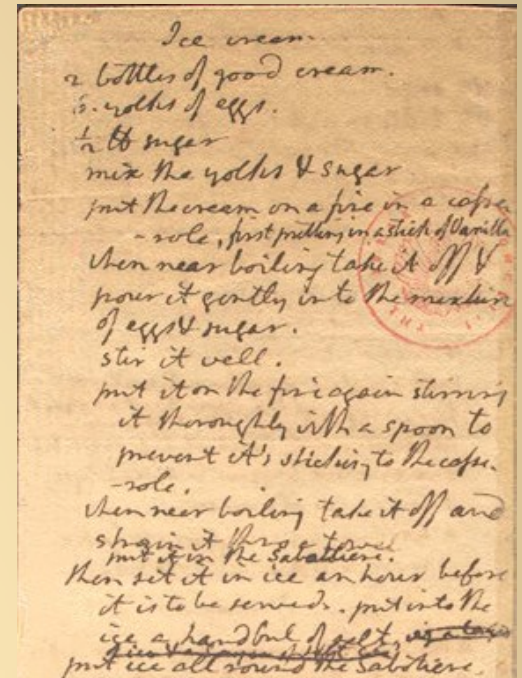 Ice cream.
2 bottles of good cream.
6. yolks of eggs.
1/2 lb sugar
mix the yolks & sugar
put the cream on a fire in a casse-
-role, first putting in a stick of Vanilla
when near boiling take it off &
pour it gently into the mixture
of eggs & sugar.
stir it well.
put it on the fire again stirring
it thoroughly with a spoon to
prevent it's sticking to the casse-
-role.
when near boiling take it off and
strain it thro' a towel.
put it in the Sabottiere.
then set it in ice an hour before
it is to be served. put into the
ice a handful of salt.
put ice all round the Sabottiere.